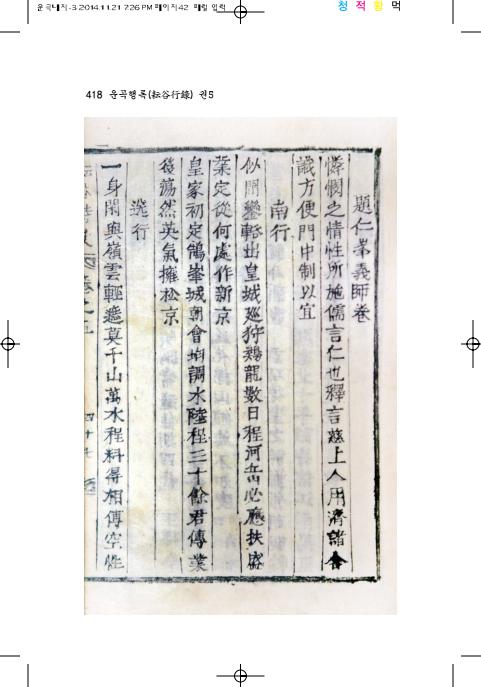 2014.11.21 7:26 PM 페이지42 입력
청 적 황 먹
418 운곡행록(耘谷行錄) 권5
題仁峯義師卷
憐憫之情性所施儒言仁也釋言慈上人用濟諸含
識方便門中制以宜
南行
似聞鑾輅出皇城巡狩鷄龍數日程河岳必應扶盛
業定從何處作新京
皇家初定鵠峯城朝會調水陸程三十餘君傳業
後蕩然英氣擁松京
送行
一身閑與嶺雲輕遮莫千山萬水程料得相傳空性
卷之五 四十七